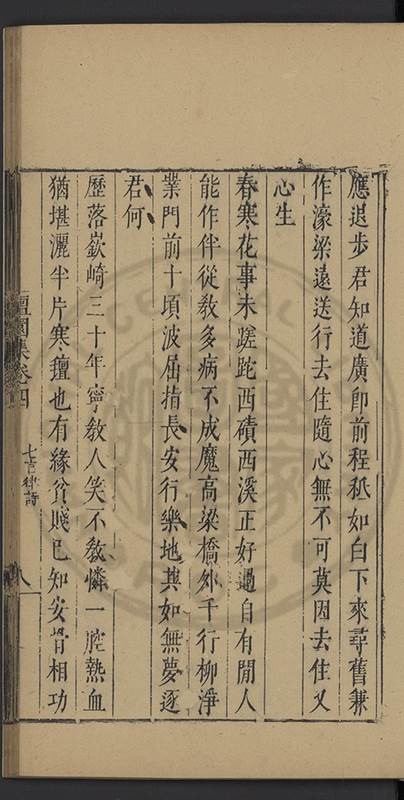 應退步君知道廣即前程秪如白下來尋舊兼
作濠梁遠送行去住隨心無不可莫因去住又
心生
春寒花事未蹉跎西磧西溪正好過自有閒人
能作伴從教多病不成魔高梁橋外千行柳淨
業門前十頃波屈指長安行樂地其如無夢逐
君何
歷落嶔崎三十年寧教人笑不教憐一腔熱血
猶堪灑半片寒氊也有緣貧賤已知安骨相功
集卷四
七言律詩
八